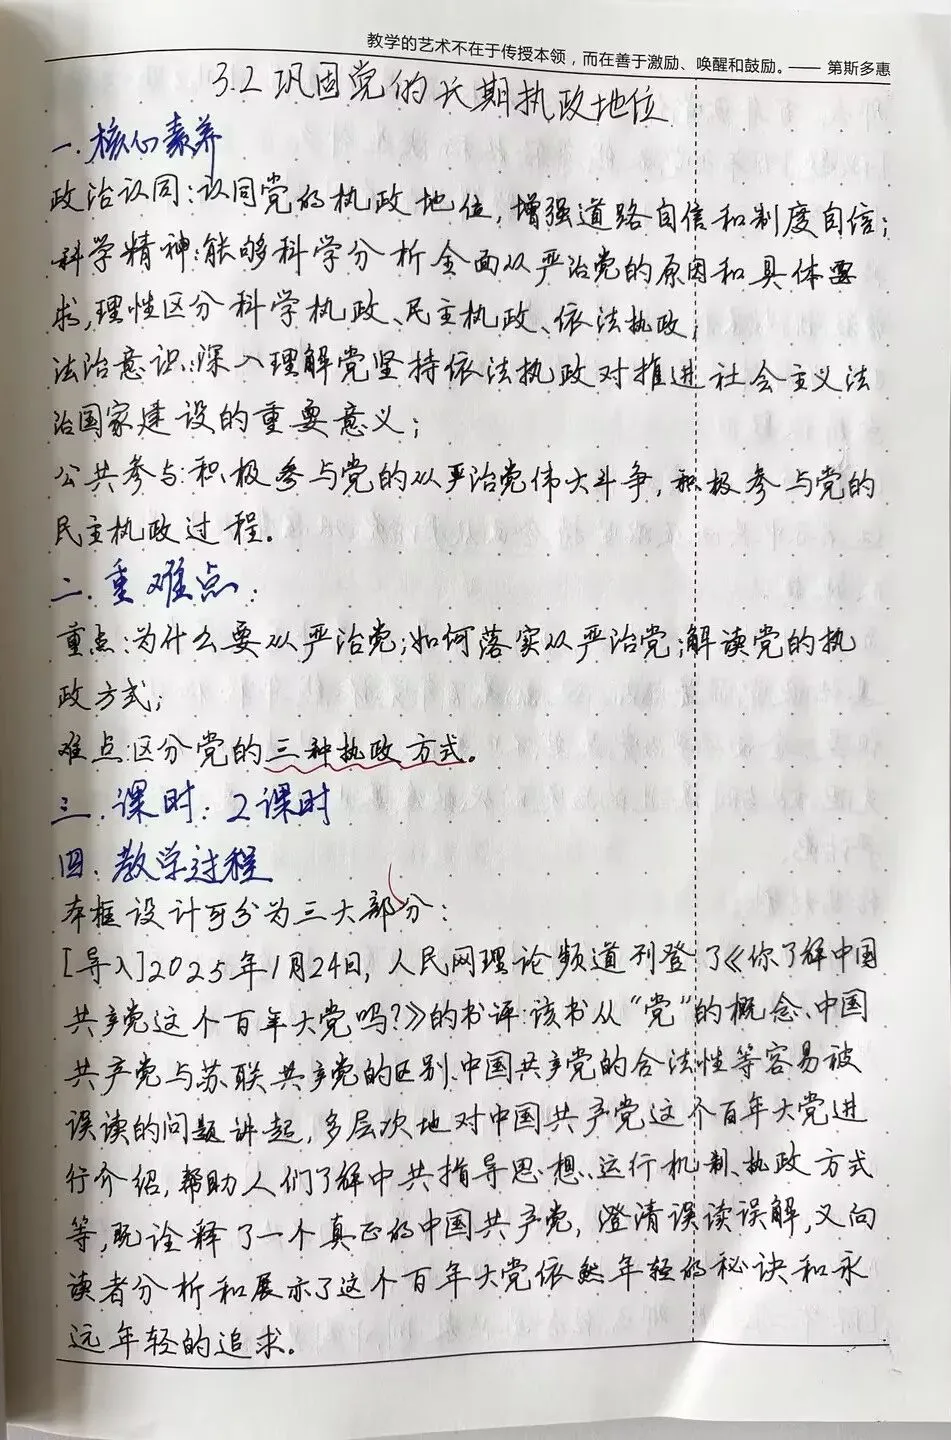 教学的艺术不在于传授本领，而在善于激励、唤醒和鼓励。—— 第斯多惠
3.2 巩固党的长期执政地位
一.核心素养
政治认同:认同党的执政地位,增强道路自信和制度自信;
科学精神:能够科学分析全面从严治党的原因和具体要
求,理性区分科学执政、民主执政、依法执政;
法治意识:深入理解党坚持依法执政对推进社会主义法
治国家建设的重要意义;
公共参与:积极参与党的从严治党伟大斗争,积极参与党的
民主执政过程。
二.重难点:
重点:为什么要从严治党;如何落实从严治党;解读党的执
政方式;
难点:区分党的三种执政方式。
三.课时:2课时
四.教学过程
本框设计可分为三大部分:
[导入]2025年1月24日,人民网理论频道刊登了《你了解中国
共产党这个百年大党吗?》的书评:该书从“党”的概念、中国
共产党与苏联共产党的区别、中国共产党的合法性等容易被
误读的问题讲起,多层次地对中国共产党这个百年大党进
行介绍,帮助人们了解中共指导思想、运行机制、执政方式
等,既诠释了一个真正的中国共产党,澄清误读误解,又向
读者分析和展示了这个百年大党依然年轻的秘诀和永
远年轻的追求。